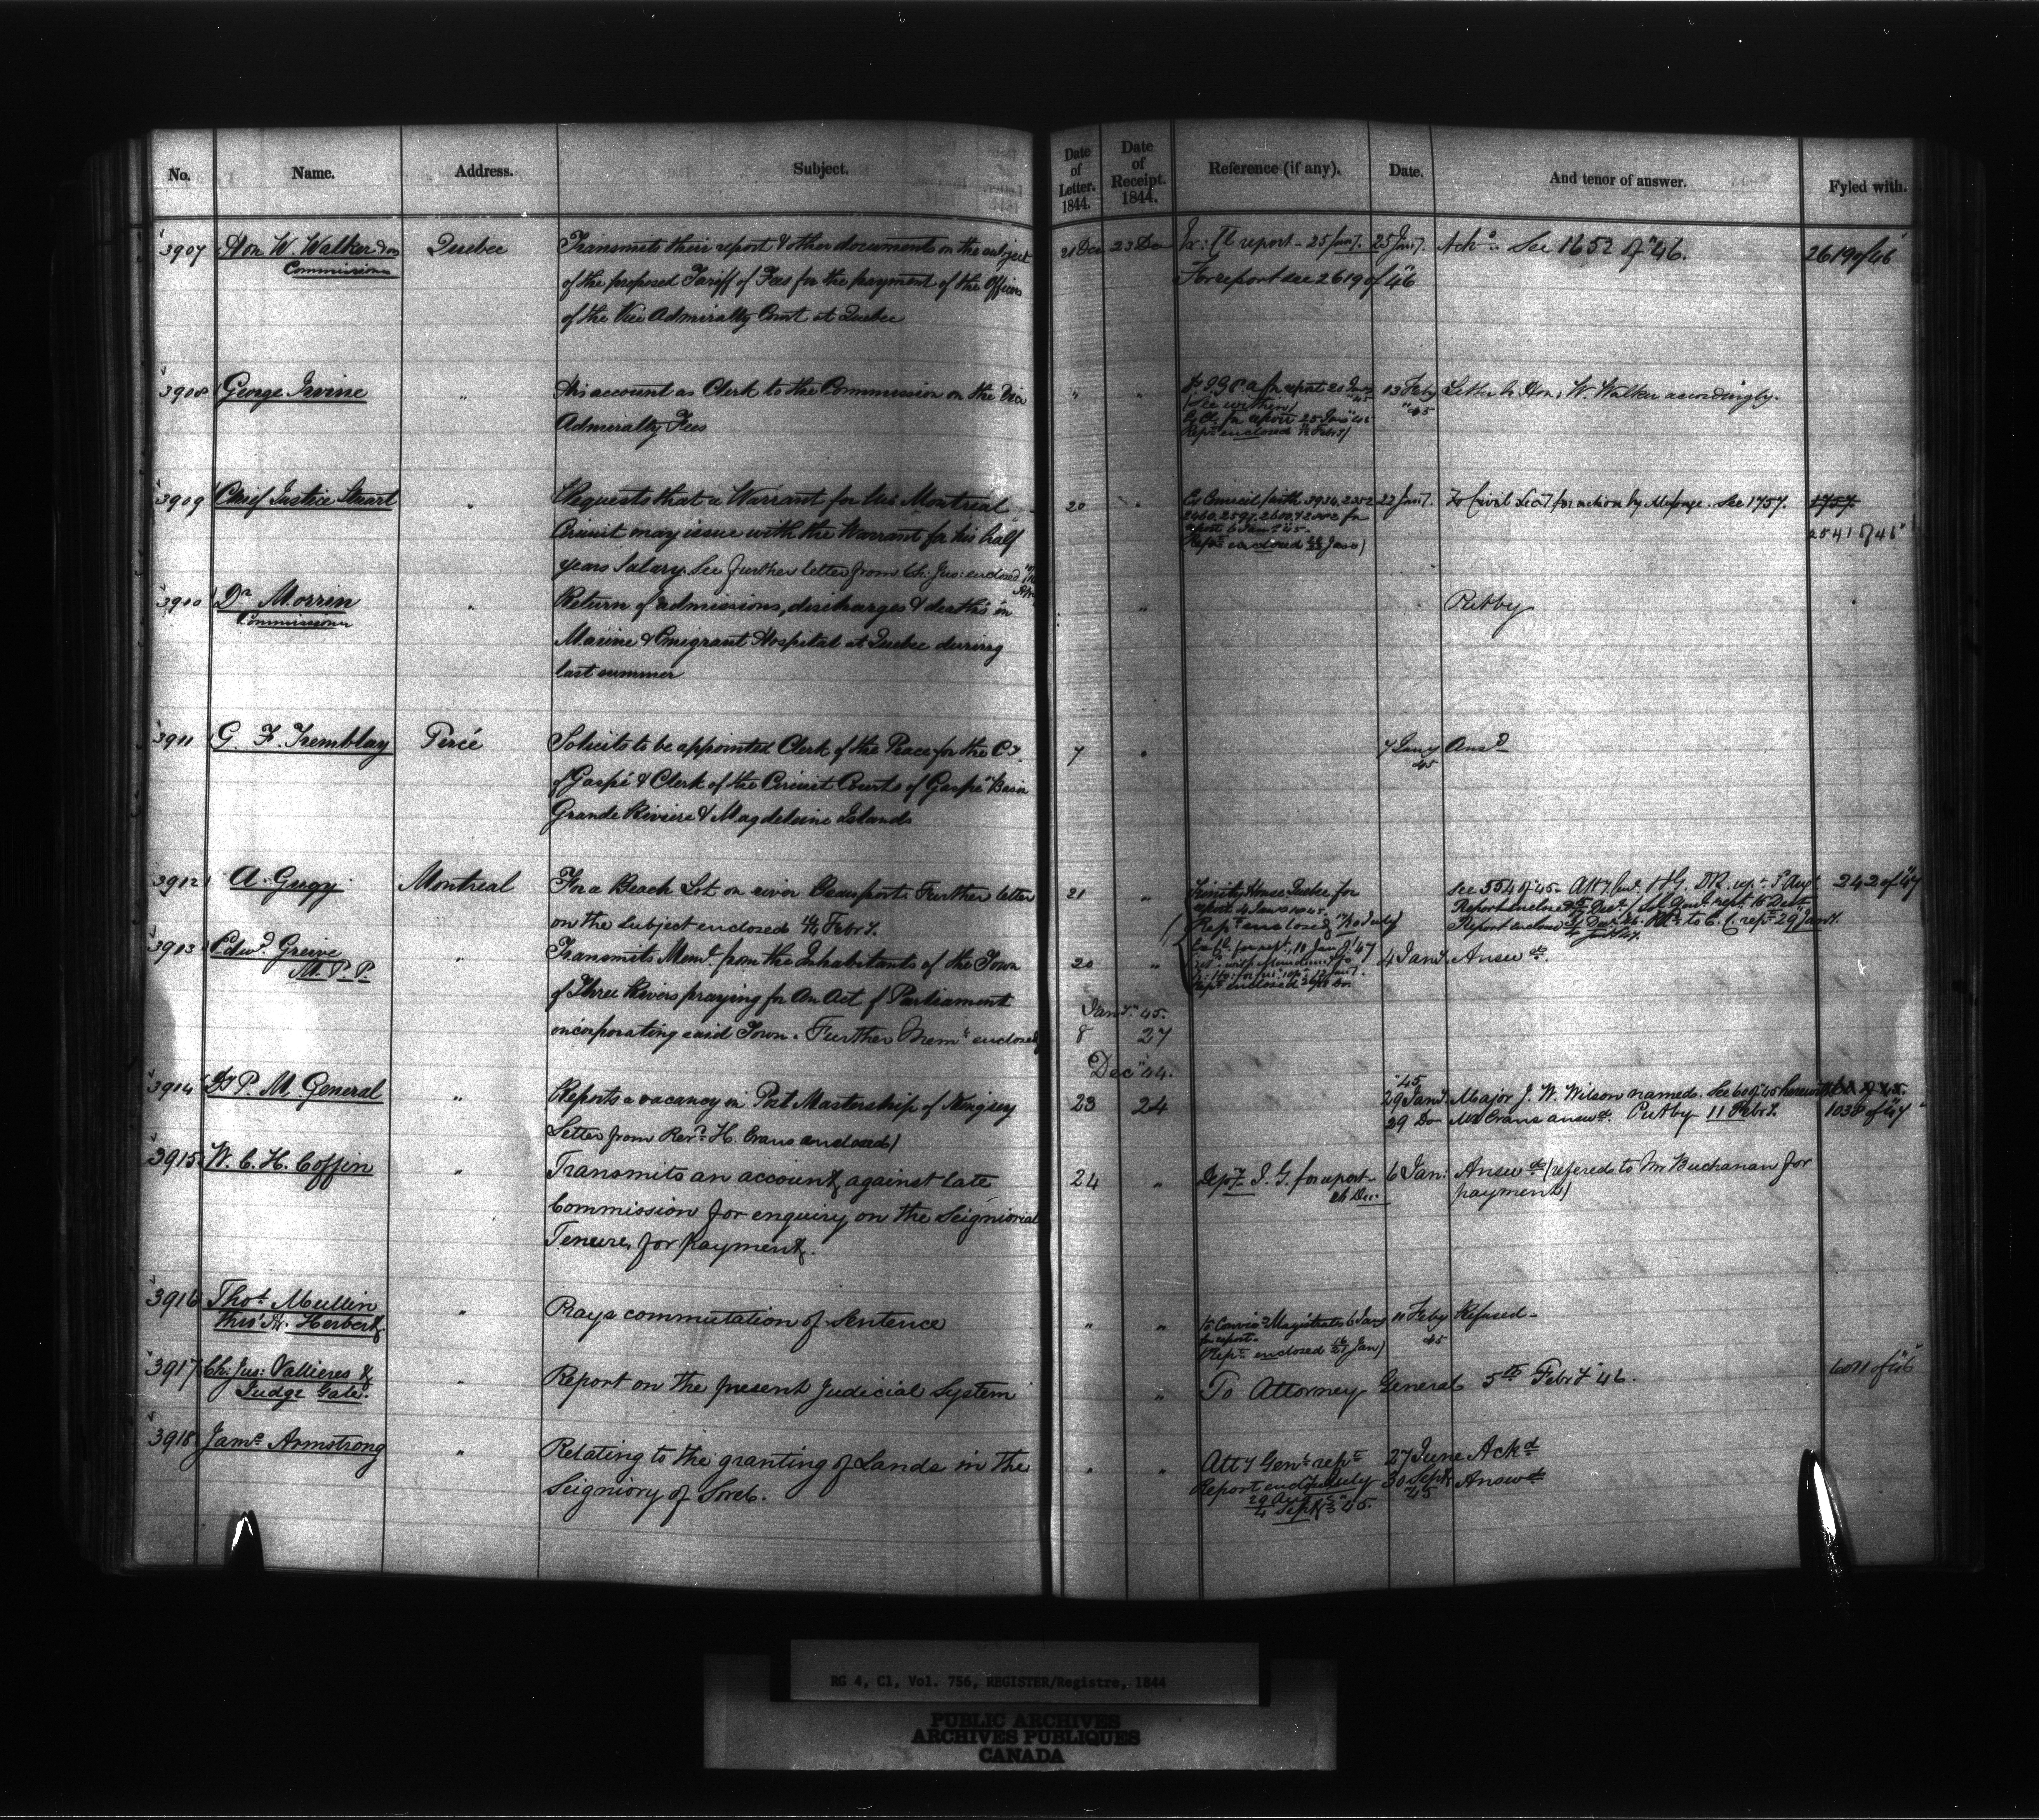 No. Name. Address. Subject. Date of Letter. 1844. Date of Receipt. 1844. Reference (if any). Date. And tenor of answer. Fyled with.
3907 Hon W. Walker Quebec Transmits their report & other documents on the subject 21 Dec 23 Dec Ex: Cl report - 25 Jany. 25 Jany. Ackd. See 1652 of "46. 2619 of "46
Commissioner of the proposed Tariff of Fees for the payment of the Officers For report see 2619 of "46
of the Vice Admiralty Court at Quebec
3908 George Irvine " His account as Clerk to the Commission on the Vice " " 13 Feby "45 Letter to Hon: W. Walker accordingly.
Admiralty Fees
(See within)
Ex Cl. for report 25 Jany "45
Rept enclosed
3909 Chief Justice Stuart " Requests that a Warrant for his Montreal 20 " Ex Council (with 3934, 2352 22 Jany. To Civil Secy for action by Message. See 1757. 1757
Circuit may issue with the Warrant for his half report 6 Jany "45 2541 of "46
years Salary. See further letter from Ch: Jus: enclosed (Rept enclosed Jany)
3910 Dr Morrin " Return of admissions, discharges & deaths in " Put by
Commissioner Marine & Emigrant Hospital at Quebec during
last summer
3911 G. F. Tremblay Percé Solicits to be appointed Clerk of the Peace for the Cy. 7 " 7 Jany "45 Ansd
of Gaspé & Clerk of the Circuit Courts of Gaspé Basin
Grande Riviere & Magdeleine Islands
3912 A. Gugy Montreal For a Beach Lot on river Beauport. Further letter 21 " Trinity House Quebec for See 554 of "45 242 of "47
on the subject enclosed Febry. report 4 Jany
Rept enclosed
3913 Edwd. Greive " Transmits Meml. from the Inhabitants of the Town 20 " 4 Jany. Answd.
M. P. P. of Three Rivers praying for An Act of Parliament Jany. "45.
incorporating said Town. Further Mem enclosed 8 27
Dec "44.
3914 Dy P. M. General " Reports a vacancy in Post Mastership of Kingsey 23 24 "45 29 Jany. Major J. W. Wilson named. See 60 of "45
Letter from Revd. H. Evans enclosed) 29 Do Mr Evans answd. Put by 11 Febry. 1038 of "47
3915 W. C. H. Coffin " Transmits an account against late 24 " Depy. I. G. for report - 26 Dec. 6 Jan: Answd (refered to Mr Buchanan for
Commission for enquiry on the Seigniorial payment)
Tenure, for payment.
3916 Thos. Mullin " Prays commutation of Sentence " " Magistrates 6 Jany 11 Feby "45 Refused -
thro' Mr. Herbert for report -
(Rept enclosed Jan)
3917 Ch: Jus: Vallieres & " Report on the present Judicial System " To Attorney General 5th Febry "46.
Judge Gale.
3918 Jams Armstrong " Relating to the granting of Lands in the " " Atty Genl. rept 27 June Ackd
Seigniory of Sorel. Report encld July 30 Sept. "45 Answd
29 Aug
4 Sept "45.
RG 4, C1, Vol. 756, REGISTER/Registre, 1844
PUBLIC ARCHIVES
ARCHIVES PUBLIQUES
CANADA